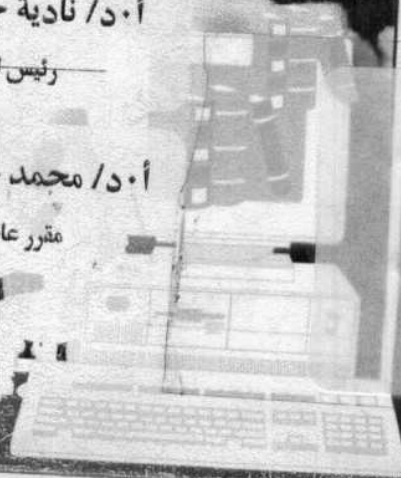 أ.د/ نادية
رئيس
أ.د/ محمد
مقرر